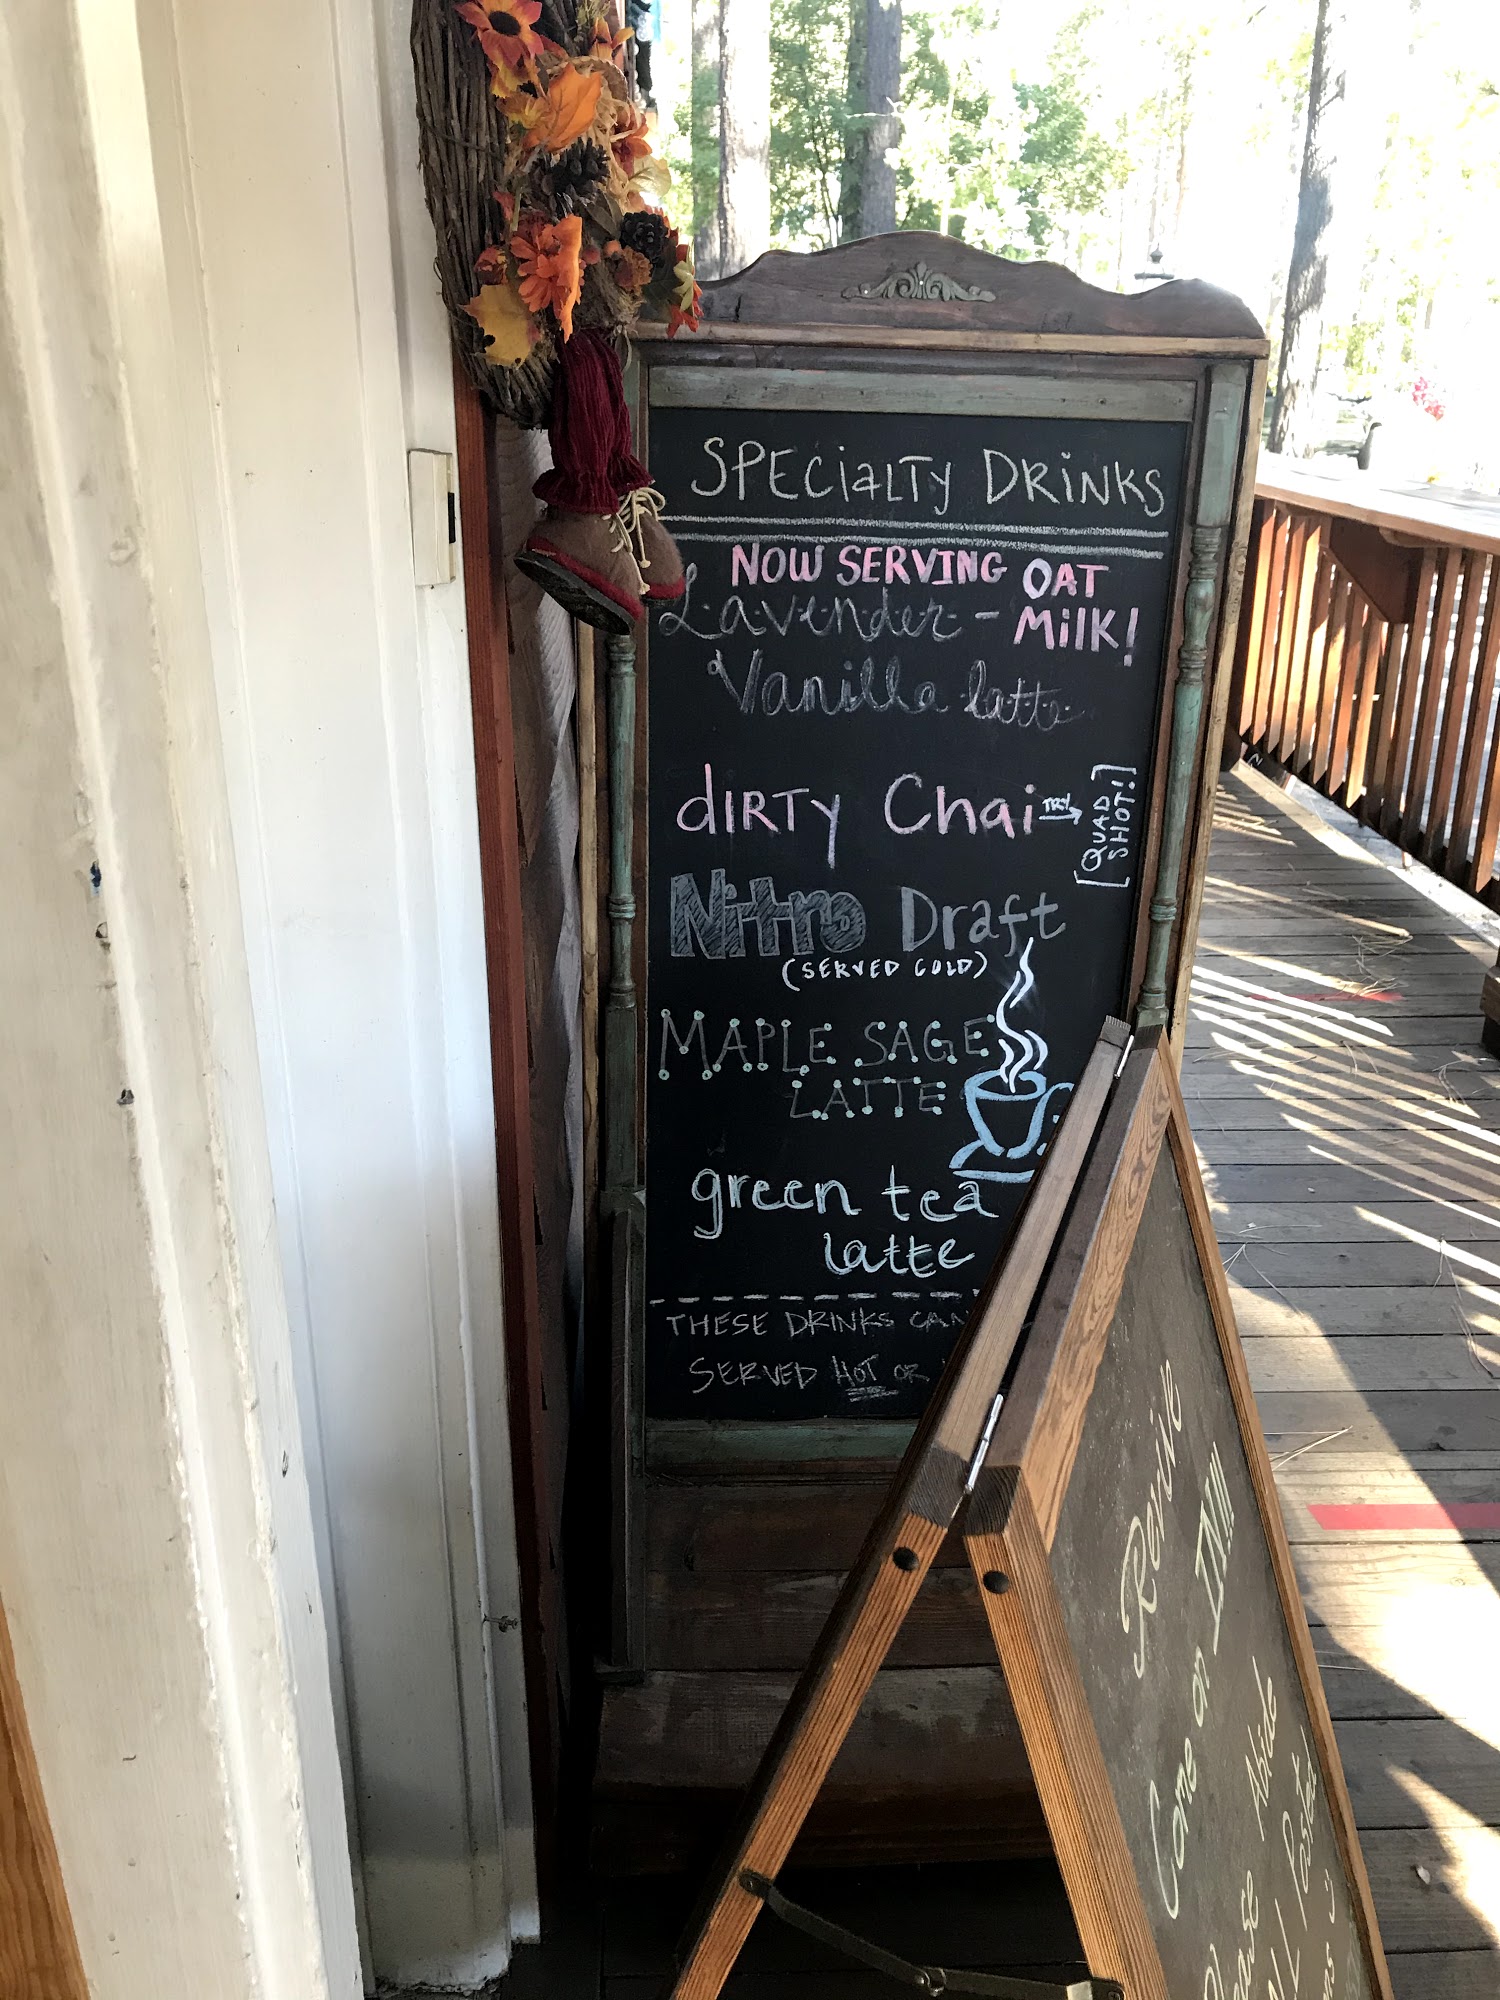 SPEciaLTy DRiNKS
NOW SERVING OAT
Lavender - MilK!
Vanilla latte
dIRTy Chai TRY [QUAD SHOT!]
Nitro Draft
(SERVED COLD)
MAPLE SAGE
LATTE
green tea
latte
THESE DRINKS CAN
SERVED HOT OR
Revive
Come on IN!!!
Please Abide
Posted